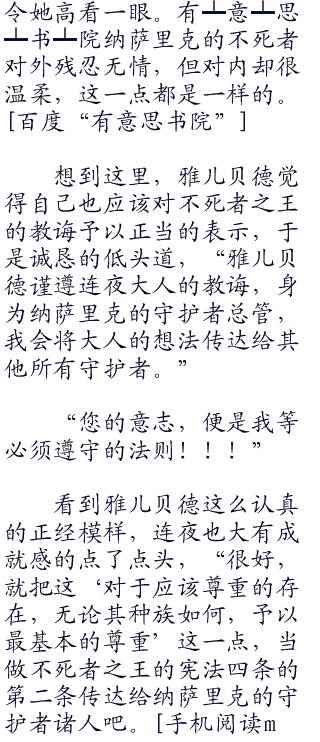 令她高看一眼。有┻意┻思
┻书┻院纳萨里克的不死者
对外残忍无情，但对内却很
温柔，这一点都是一样的。
[百度“有意思书院”]
想到这里，雅儿贝德觉
得自己也应该对不死者之王
的教诲予以正当的表示，于
是诚恳的低头道，“雅儿贝
德谨遵连夜大人的教诲，身
为纳萨里克的守护者总管，
我会将大人的想法传达给其
他所有守护者。”
“您的意志，便是我等
必须遵守的法则！！！”
看到雅儿贝德这么认真
的正经模样，连夜也大有成
就感的点了点头，“很好，
就把这‘对于应该尊重的存
在，无论其种族如何，予以
最基本的尊重’这一点，当
做不死者之王的宪法四条的
第二条传达给纳萨里克的守
护者诸人吧。[手机阅读m